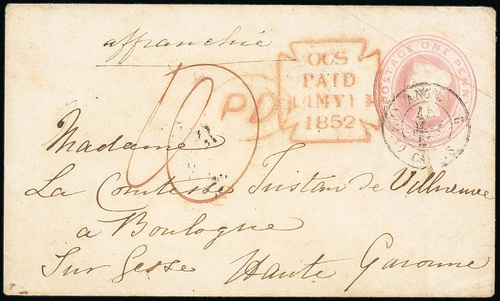 affranchie
OCS
PAID
1MY1
1852
POSTAGE ONE PENNY
PD
10
ANGL.
Madame
La Comtesse Tristan de Villeneuve
a Boulogne
Sur Gesse Haute Garonne